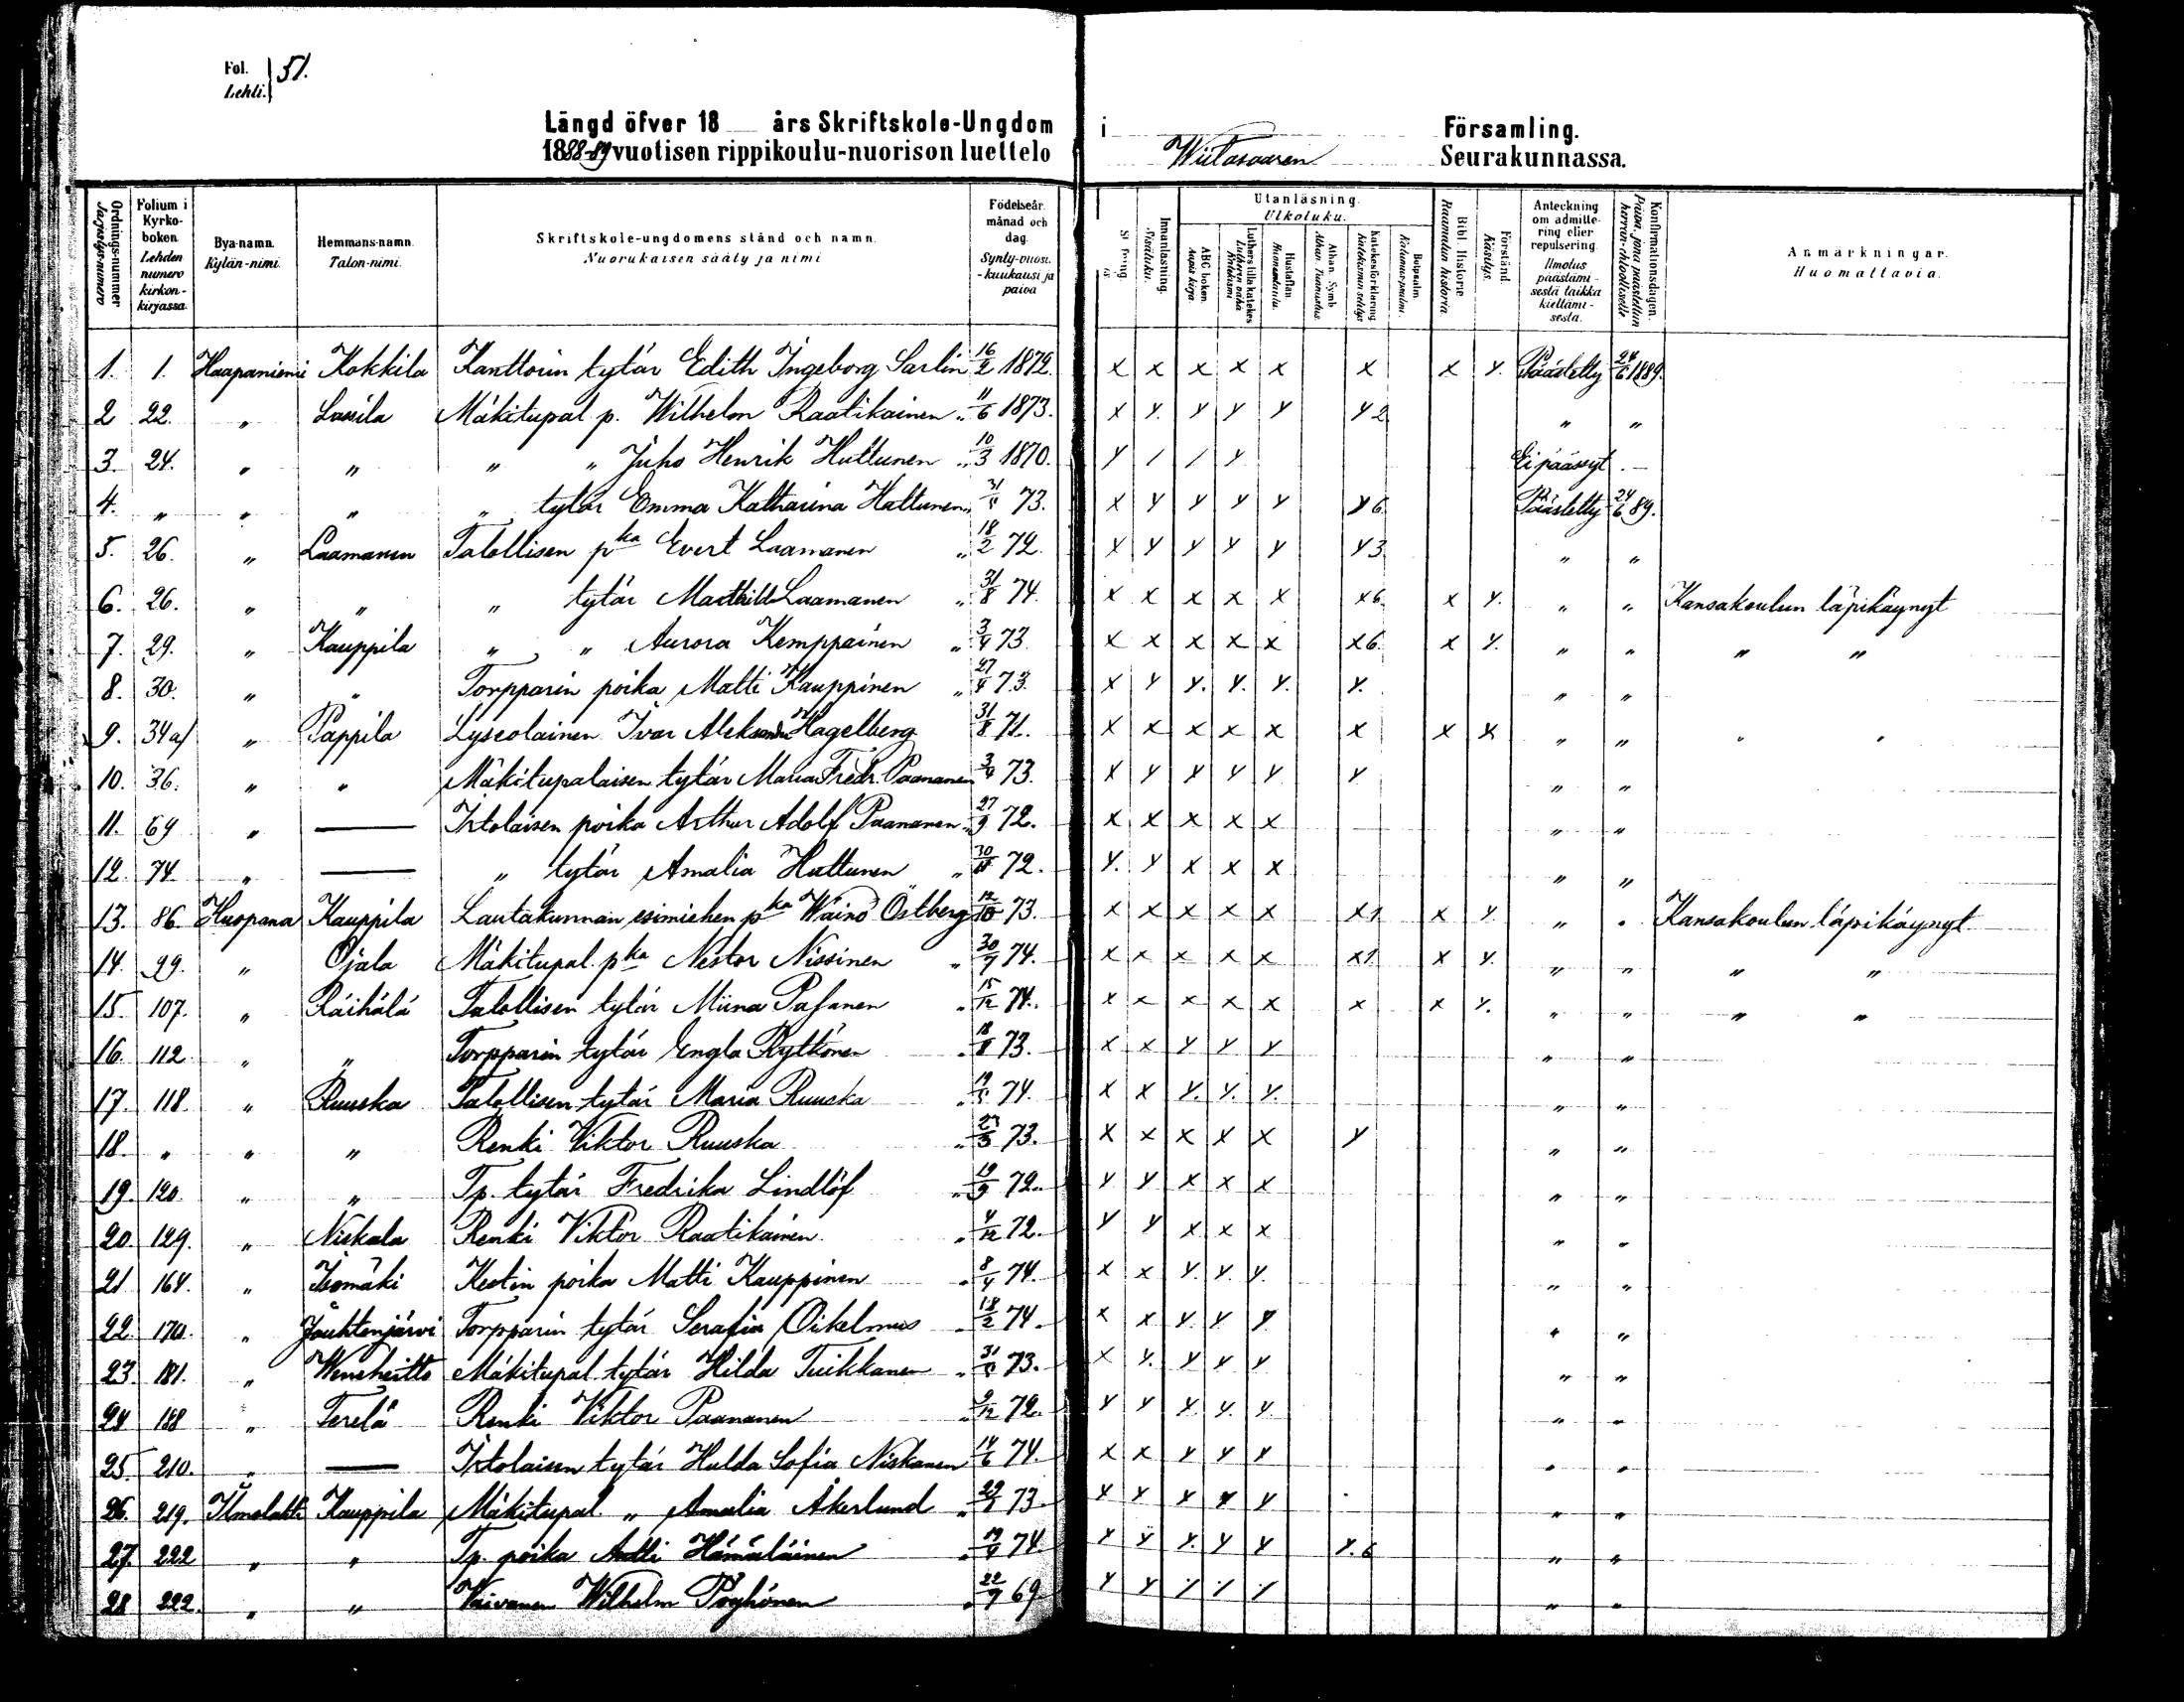 Fol. Lehti. } 51.
Längd öfver 18 års Skriftskole-Ungdom i Församling.
1888-89 vuotisen rippikoulu-nuorison luettelo Wiitasaaren Seurakunnassa.
Ordnings-nummer Järjestys-numero | Folium i Kyrko-boken. Lehden numero kirkon-kirjassa. | Bya-namn. Kylän-nimi. | Hemmans-namn. Talon-nimi. | Skriftskole-ungdomens stånd och namn. Nuorukaisen sääty ja nimi | Födelseår, månad och dag. Synty-vuosi, -kuukausi ja päivä | Innanläsning. Sisäluku. | Utanläsning. Ulkoluku. | ABC boken. Aapis kirja | Luthers lilla katekes Lutherin vähä Katkismi | Hustaflan. Huoneentaulu. | Athan. Symb. Athan. Tunnustus. | Katekesförklaring Katekismun selitys | Botpsalm. Katumus-psalmi. | Bibl. Historie Raamatun historia | Förstånd. Käsitys. | Anteckning om admitte-ring eller repulsering. Ilmotus päästämi-sestä taikka kieltämi-sestä. | Konfirmationsdagen. Päivä, jona päästettiin herran-ehtoolliselle | Anmärkningar. Huomattavia.
1. 1. Haapaniemi Kokkila Kanttorin tytär Edith Ingeborg Sarlin 16/2 1872. x x x x x x x y. Päästetty 24/6 1889.
2 22. " Lassila Mäkitupal p. Wilhelm Raatikainen " 11/6 1873. x y. y y y y 2 " "
3. 24. " " " " Juho Henrik Huttunen " 10/3 1870. y / / y Ei päässyt. —
4. " " " " tytär Emma Katharina Huttunen " 31/5 73. x y y y y y 6 Päästetty 24/6 89.
5. 26. " Laamanen Talollisen pka Evert Laamanen " 18/2 72. x y y y y y 3 " "
6. 26. " " " tytär Mathilda Laamanen " 31/8 74. x x x x x x 6. x y. " " Kansakoulun läpikäynyt
7. 29. " Kauppila " " Aurora Kemppainen " 3/4 73 x x x x x x 6. x y. " " " "
8. 30. " " Torpparin poika Matti Kauppinen " 27/4 73. x y y. y. y. y. " "
9. 34 a/ " Pappila Lyseolainen Ivar Aleksander Hagelberg 31/8 71. x x x x x x x x " " " "
10. 36. " " Mäkitupalaisen tytär Maria Fredr. Paananen 3/9 73. x y y y y y " "
11. 69 " — Itstolaisen poika Arthur Adolf Paananen " 27/9 72. x x x x x " "
12. 74. " — " tytär Amalia Huttunen " 30/11 72. y. y x x x " "
13. 86. Huopana Kauppila Lautakunnan esimiehen pka Wäinö Östberg 12/10 73. x x x x x x 1 x y. " " Kansakoulun läpikäynyt
14. 99. " Ojala Mäkitupal. pka Nestor Nissinen " 30/7 74. x x x x x x 1. x y. " " " "
15. 107. " Räihälä Talollisen tytär Miina Pasanen " 15/12 74. x x x x x x x y. " " " "
16. 112. " " Torpparin tytär Engla Rytkönen " 18/8 73. x x y y y " "
17. 118. " Ruuska Talollisen tytär Maria Ruuska " 19/5 74. x x y. y. y. " "
18. " " " Renki Viktor Ruuska " 23/3 73. x x x x x y " "
19. 120. " " Tp. tytär Fredrika Lindlöf " 19/9 72. y y x x x " "
20. 129. " Niskala Renki Viktor Raatikainen " 4/12 72. y y x x x " "
21 164. " Isomäki Kestin poika Matti Kauppinen " 8/4 74. x x y. y. y. " "
22. 170. " Jouhtenjärvi Torpparin tytär Serafia Oikelmus " 18/2 74. x x y. y. y " "
23. 181. " Weneheitto Mäkitupal. tytär Hilda Tuikkanen " 31/5 73. x y. y y y " "
24 188 " Terelä Renki Viktor Paananen " 9/12 72. y y y. y. y. " "
25. 210. " — Itstolaisen tytär Hulda Sofia Niskanen 14/6 74. x x y y y " "
26. 219. Ilmolahti Kauppila Mäkitupal. " Amalia Åkerlund " 29/7 73. y y y y y " "
27. 222 " " Tp. poika Antti Hämäläinen " 19/9 74. y y y. y y y. 6 " "
28 222. " " Vaivanen Wilhelm Pöyhönen " 22/7 69. y y " "